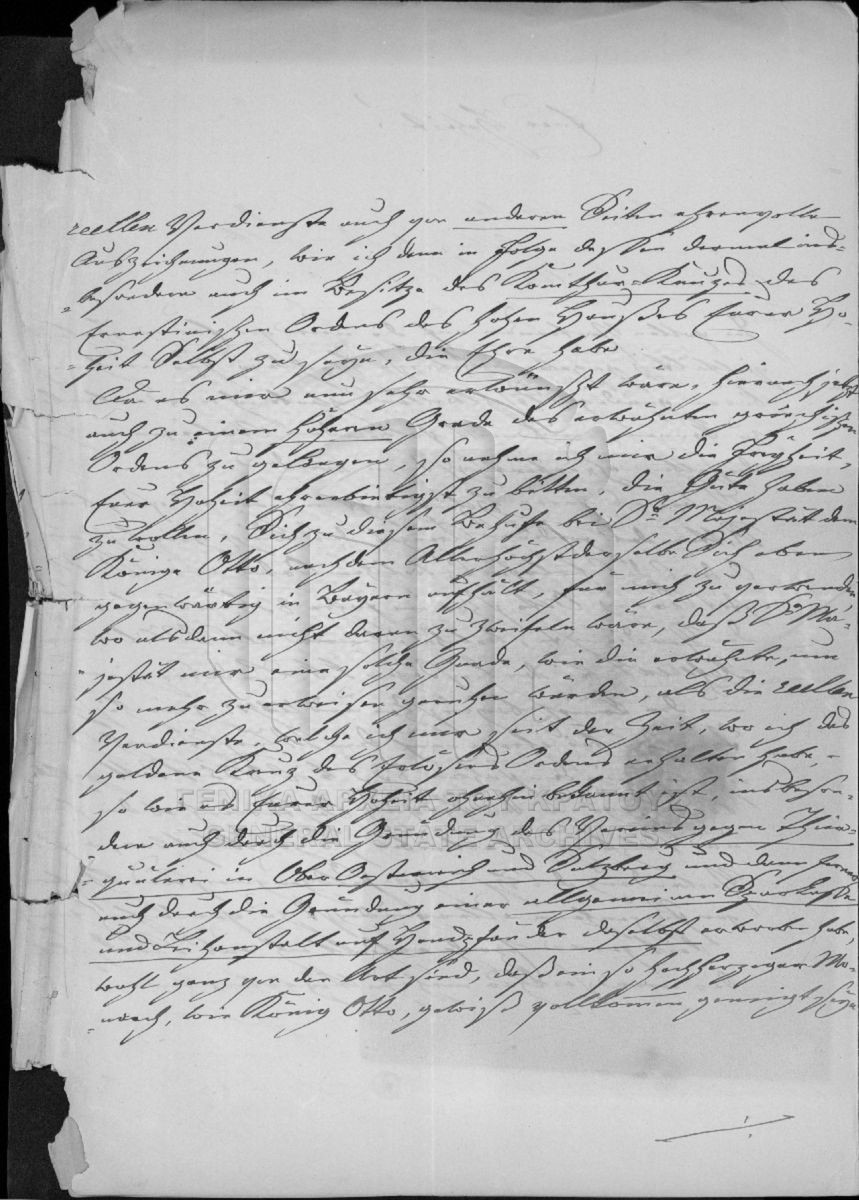 reellen Verdienste auch von anderen Seiten ehrenvolle
Auszeichnungen, wie ich denn in Folge dessen dermal ins-
-besondere auch im Besitze des Komthur-Kreuzes des
Ernestinischen Ordens des hohen Hauses Eurer Ho-
-heit Selbst zu seyn, die Ehre habe
Da es mir nun sehr erwünscht wäre, hiernach jetzt
auch zu einem höheren Grade des erwähnten griechischen
Ordens zu gelangen, so nehme ich mir die Freyheit,
Eure Hoheit ehrerbiethigst zu bitten, die Güte haben
zu wollen, Sich zu diesem Behufe bei Sr Majestät dem
Könige Otto, nachdem Allerhöchstderselbe Sich eben
gegenwärtig in Bayern aufhält, für mich zu verwenden,
wo alsdann nicht daran zu zweifeln wäre, daß Se Ma-
-jestät mir eine solche Gnade, wie die erwähnte, um
so mehr zu erweisen geruhen würden, als die reellen
Verdienste, welche ich mir seit der Zeit, wo ich das
goldene Kreuz des Erlösers Ordens erhalten habe, -
so wie es Eurer Hoheit ohnehin bekannt ist, insbeson-
dere auch durch die Gründung des Vereins gegen Thier-
-quälerei in Ober Oesterreich und Salzburg und dann ferner
auch durch die Gründung einer allgemeinen Sparkasse
und Leihanstalt auf Handpfänder daselbst erworben habe,
wohl ganz von der Art sind, daß ein so hochherziger Mo-
-narch, wie König Otto, gewiß vollkommen geneigt seyn
ΓΕΝΙΚΑ ΑΡΧΕΙΑ ΤΟΥ ΚΡΑΤΟΥΣ
GENERAL STATE ARCHIVES